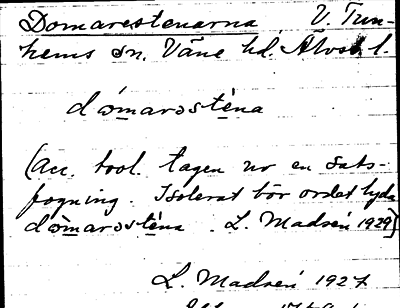 Domarestenarna V. Tun-
hems sn. Väne hd. Älvsb. l.
dómarəsténa
(Acc. tool. tagen ur en sats-
fogning. Isolerat bör ordet lyda
dòmarəsténa. L. Madsén 1929)
L. Madsén 1927